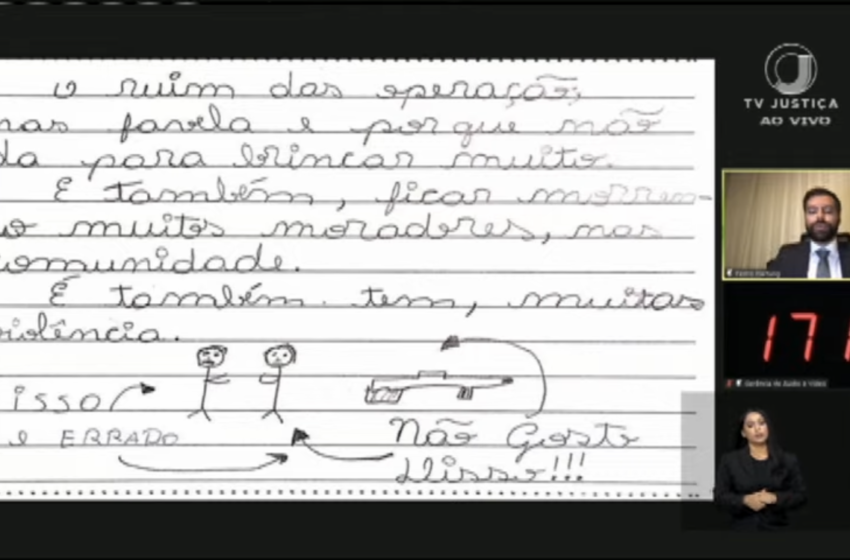 o ruim das operação,
nas favela e porque não
da para brincar muito.
E também, ficar morren-
o muitos moradores, nas
comunidade.
É também tem, muitas
violência.
isso
e ERRADO
Não Gosto
Disso!!!
TV JUSTIÇA
AO VIVO
171